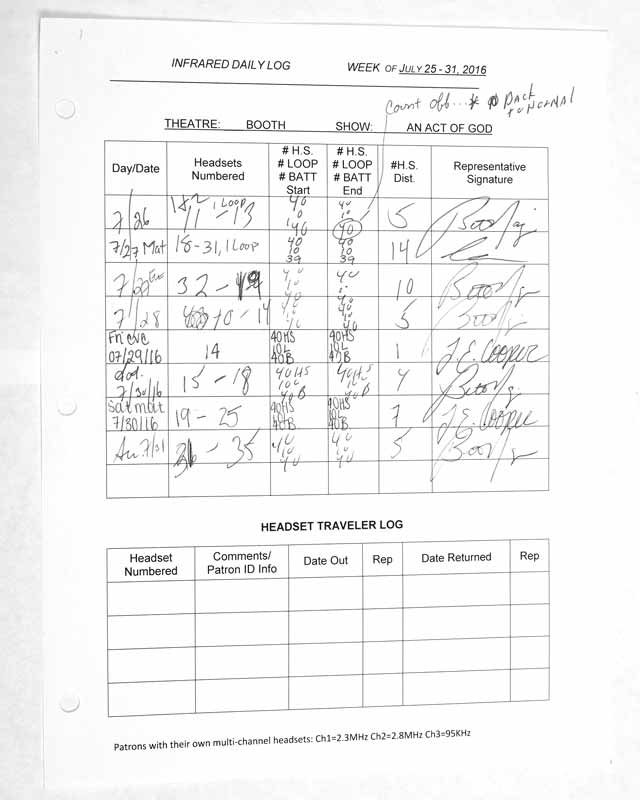 INFRARED DAILY LOG WEEK OF JULY 25 - 31, 2016
Count off...
THEATRE: BOOTH SHOW: AN ACT OF GOD
Day/Date
Headsets Numbered
# H.S. # LOOP # BATT Start
# H.S. # LOOP # BATT End
#H.S. Dist.
Representative Signature
7/26 1 Loop 11 - 13 40 10 40 40 10 40 5
7/27 Mat 18 - 31, 1 Loop 40 10 39 40 10 39 14
32 - 40 10
7/28 - 14 40 5
Fri eve 07/29/16 14 40HS 10L 40B 40HS 10L 40B 1 J. E. Cooper
7/30/16 15 - 18 40HS 10L 40B 40HS 10L 40B 4
Sat mat 7/30/16 19 - 25 40HS 10L 40B 40HS 10L 40B 7 J. E. Cooper
7/31 - 35 40 10 40 40 10 40 5
HEADSET TRAVELER LOG
Headset Numbered
Comments/ Patron ID Info
Date Out
Rep
Date Returned
Rep
Patrons with their own multi-channel headsets: Ch1=2.3MHz Ch2=2.8MHz Ch3=95KHz